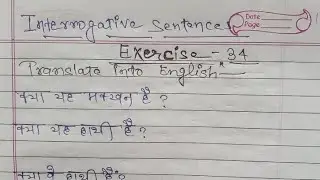 Interrogative Sentence
Date
Page
Exercise - 34
Translate Into English:-
क्या यह मक्खन है ?
क्या यह हाथी है ?
क्या वे हाथी हैं ?